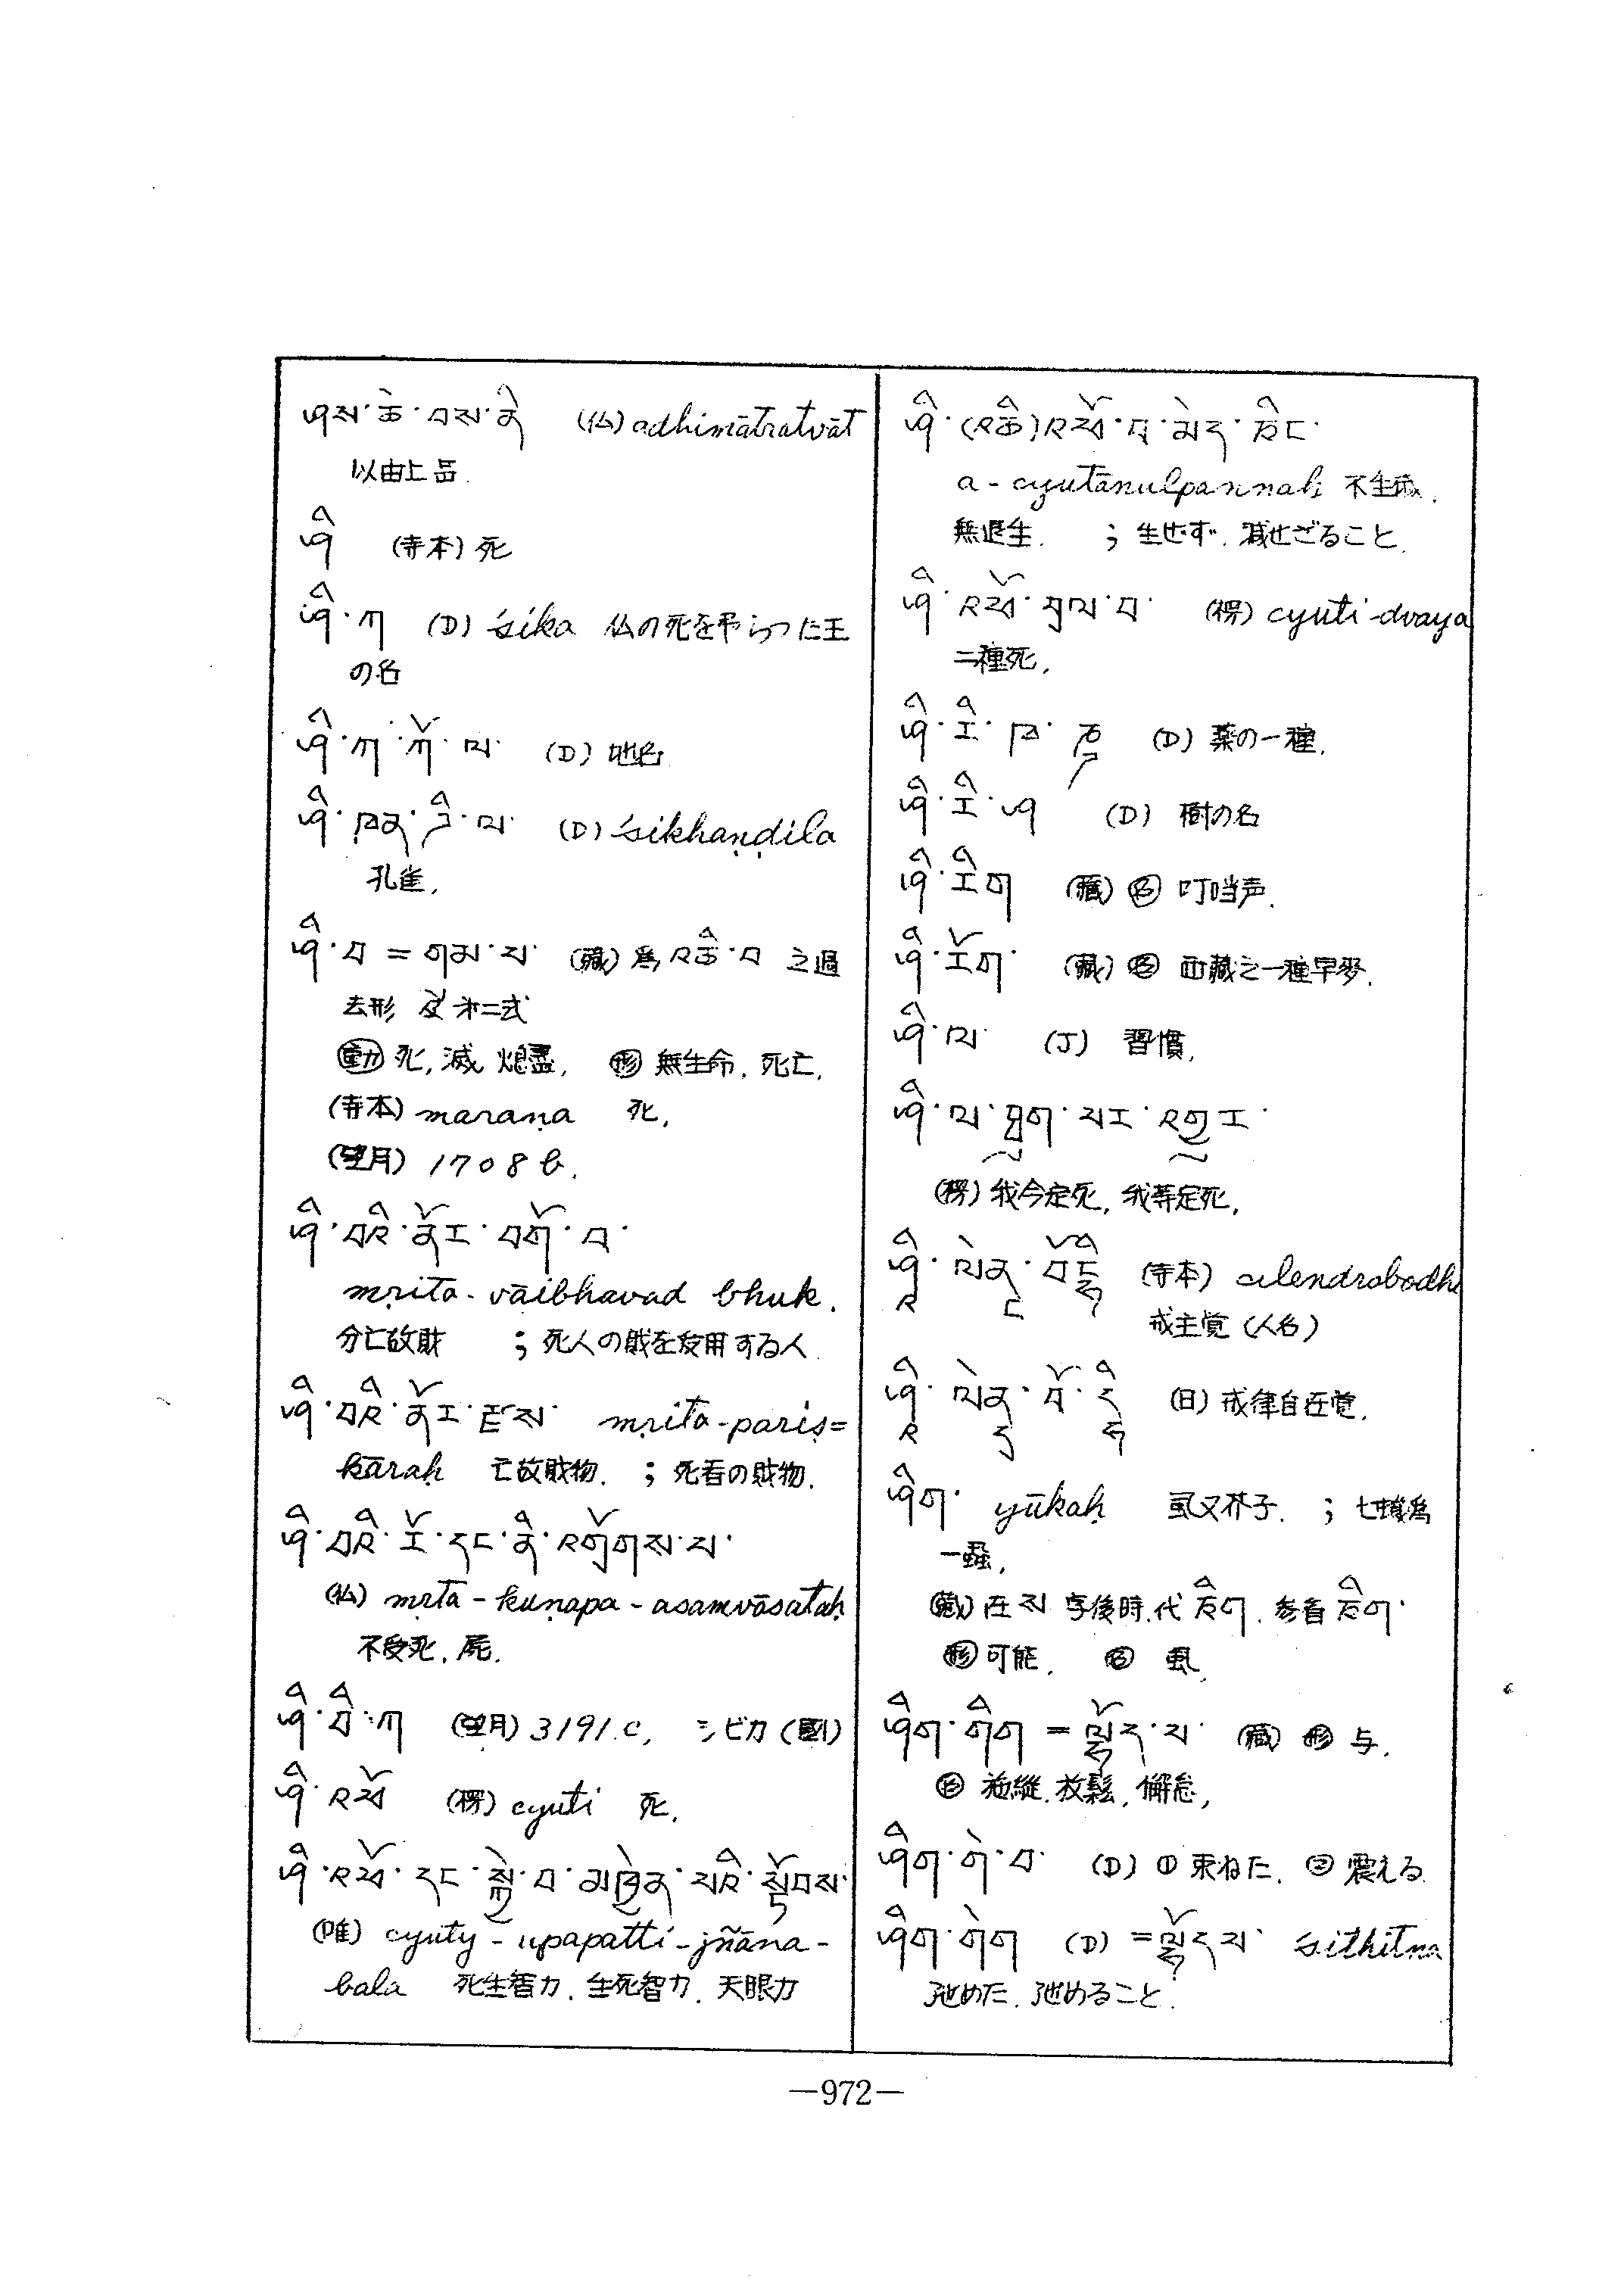 ཤས་ཆེ་བས་ནི (仏) adhimātratvāt
以由上品.
ཤི (寺本) 死
ཤི་ཀ (D) śika 仏の死を弔らつた王
の名
ཤི་ཀ་ཀོ་ལ་ (D) 地名
ཤི་ཁན་ཌི་ལ་ (D) śikhaṇḍila
孔雀,
ཤི་བ = གུམ་པ་ (藏) 爲 འཆི་བ 之過
去形 及 㐧二式
動 死, 滅, 熄盡, 形 無生命, 死亡,
(寺本) maraṇa 死,
(望月) 1708 b.
ཤི་བའི་ནོར་བགོ་བ་
mṛita- vaibhavad bhuk.
分亡故財 ; 死人の財を受用する人
ཤི་བའི་ནོར་རྫས་ mṛita-pariṣ=
kāraḥ 亡故財物. ; 死者の財物.
ཤི་བའི་རོ་དང་ནི་འགྲོགས་པ་
(仏) mṛta - kuṇapa - asamvāsataḥ
不受死, 屍.
ཤི་བི་ཀ (望月) 3191.c, シビカ (國)
ཤི་འཕོ (楞) cyuti 死,
ཤི་འཕོ་དང་སྐྱེ་བ་མཁྱེན་པའི་སྟོབས་
(唯) cyuty - upapatti - jñāna -
bala 死生智力, 生死智力, 天眼力
ཤི་(འཆི)འཕོ་བ་མེད་ཅིང་
a - cyutānulpannaḥ 不生滅.
無退生. ; 生せず. 滅せざること.
ཤི་འཕོ་གཉིས་པ་ (楞) cyuti-dvaya
二種死,
(D) 薬の一種.
ཤི་རི་ཤ (D) 樹の名
ཤི་རིག (藏) 名 叮当声.
ཤི་རོག་ (藏) 名 西藏之一種早麥.
ཤི་ལ་ (J) 習慣,
ཤི་ལ་ཐུག་པར་འགྱུར་
(楞) 我今定死, 我等定死,
(寺本) śilendrabodhi
戒主覚 (人名)
(日) 戒律自在覚,
ཤིག་ yūkaḥ 虱又芥子. ; 七蟣爲
一蝨,
(藏) 在 ས 字後時, 代 ཅིག, 参看 ཅིག་
形 可能, 名 虱,
ཤིག་གིག = ལྷོད་པ་ (藏) 形 与,
名 弛縱, 放鬆, 懈怠,
ཤིག་གེ་བ་ (D) ① 束ねた. ② 震える
ཤིག་གེག (D) = ལྷོད་པ་ śithitna
弛めた, 弛めること.
—972—